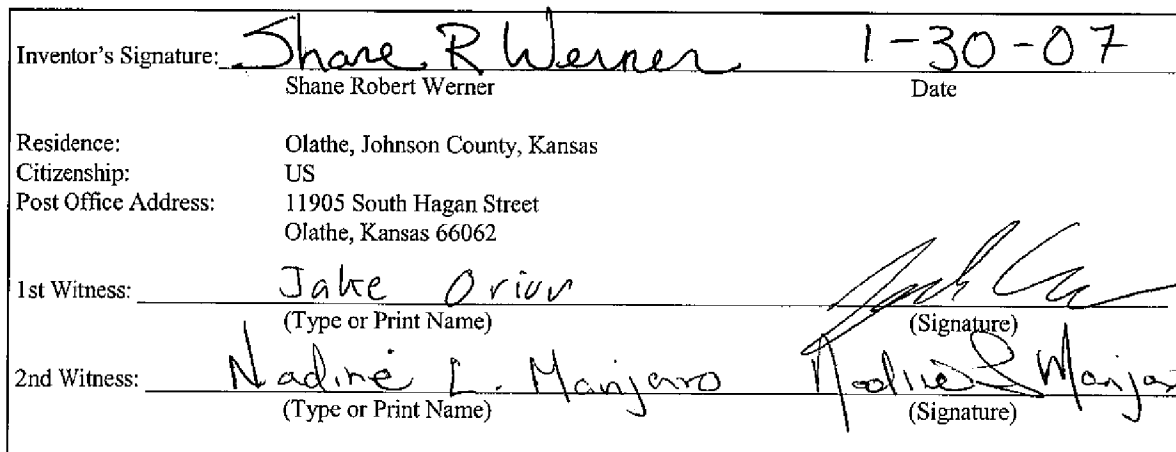 Inventor's Signature: Shane R Werner 1-30-07
Shane Robert Werner Date
Residence: Olathe, Johnson County, Kansas
Citizenship: US
Post Office Address: 11905 South Hagan Street
Olathe, Kansas 66062
1st Witness: Jake Orion
(Type or Print Name) (Signature)
2nd Witness: Nadine L. Manjarro Nadine L Manjar
(Type or Print Name) (Signature)